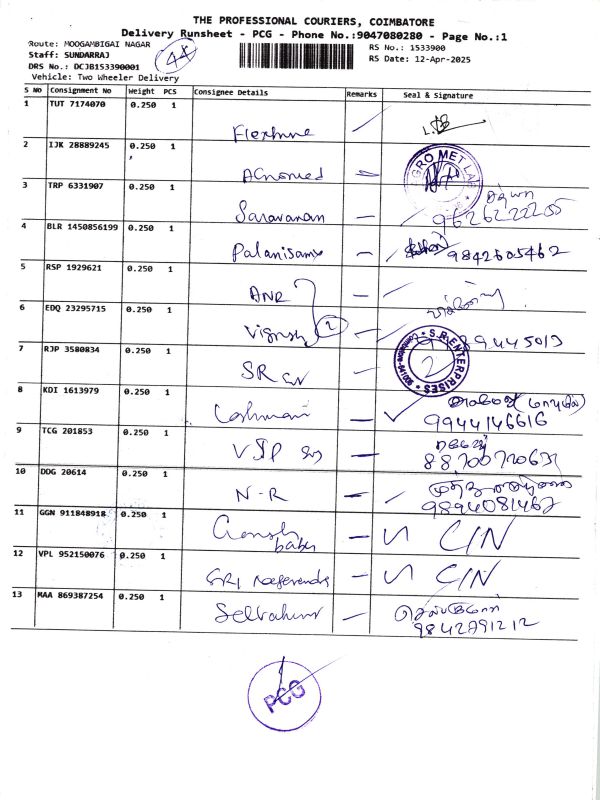 THE PROFESSIONAL COURIERS, COIMBATORE
Delivery Runsheet - PCG - Phone No.:9047080280 - Page No.:1
Route: MOOGAMBIGAI NAGAR
Staff: SUNDARRAJ
DRS No.: DCJB153390001
Vehicle: Two Wheeler Delivery
44
RS No.: 1533900
RS Date: 12-Apr-2025
S NO Consignment No Weight PCS Consignee Details Remarks Seal & Signature
1 TUT 7174070 0.250 1
2 IJK 28889245 0.250 1
AGROMET LAB
3 TRP 6331907 0.250 1 Saravanan
4 BLR 1450856199 0.250 1 Palanisamy 9842605462
5 RSP 1929621 0.250 1 ANR
6 EDQ 23295715 0.250 1 2
7 RJP 3580834 0.250 1 SR
S.R.ENTERPRISES
2
8 KDI 1613979 0.250 1 9944146616
9 TCG 201853 0.250 1 VJP
10 DDG 20614 0.250 1 N-R 9894081467
11 GGN 911848918 0.250 1 Ganesh babu C/N
12 VPL 952150076 0.250 1 SRI C/N
13 MAA 869387254 0.250 1 Selvakumar செல்வகுமார்
9842791212
PCG